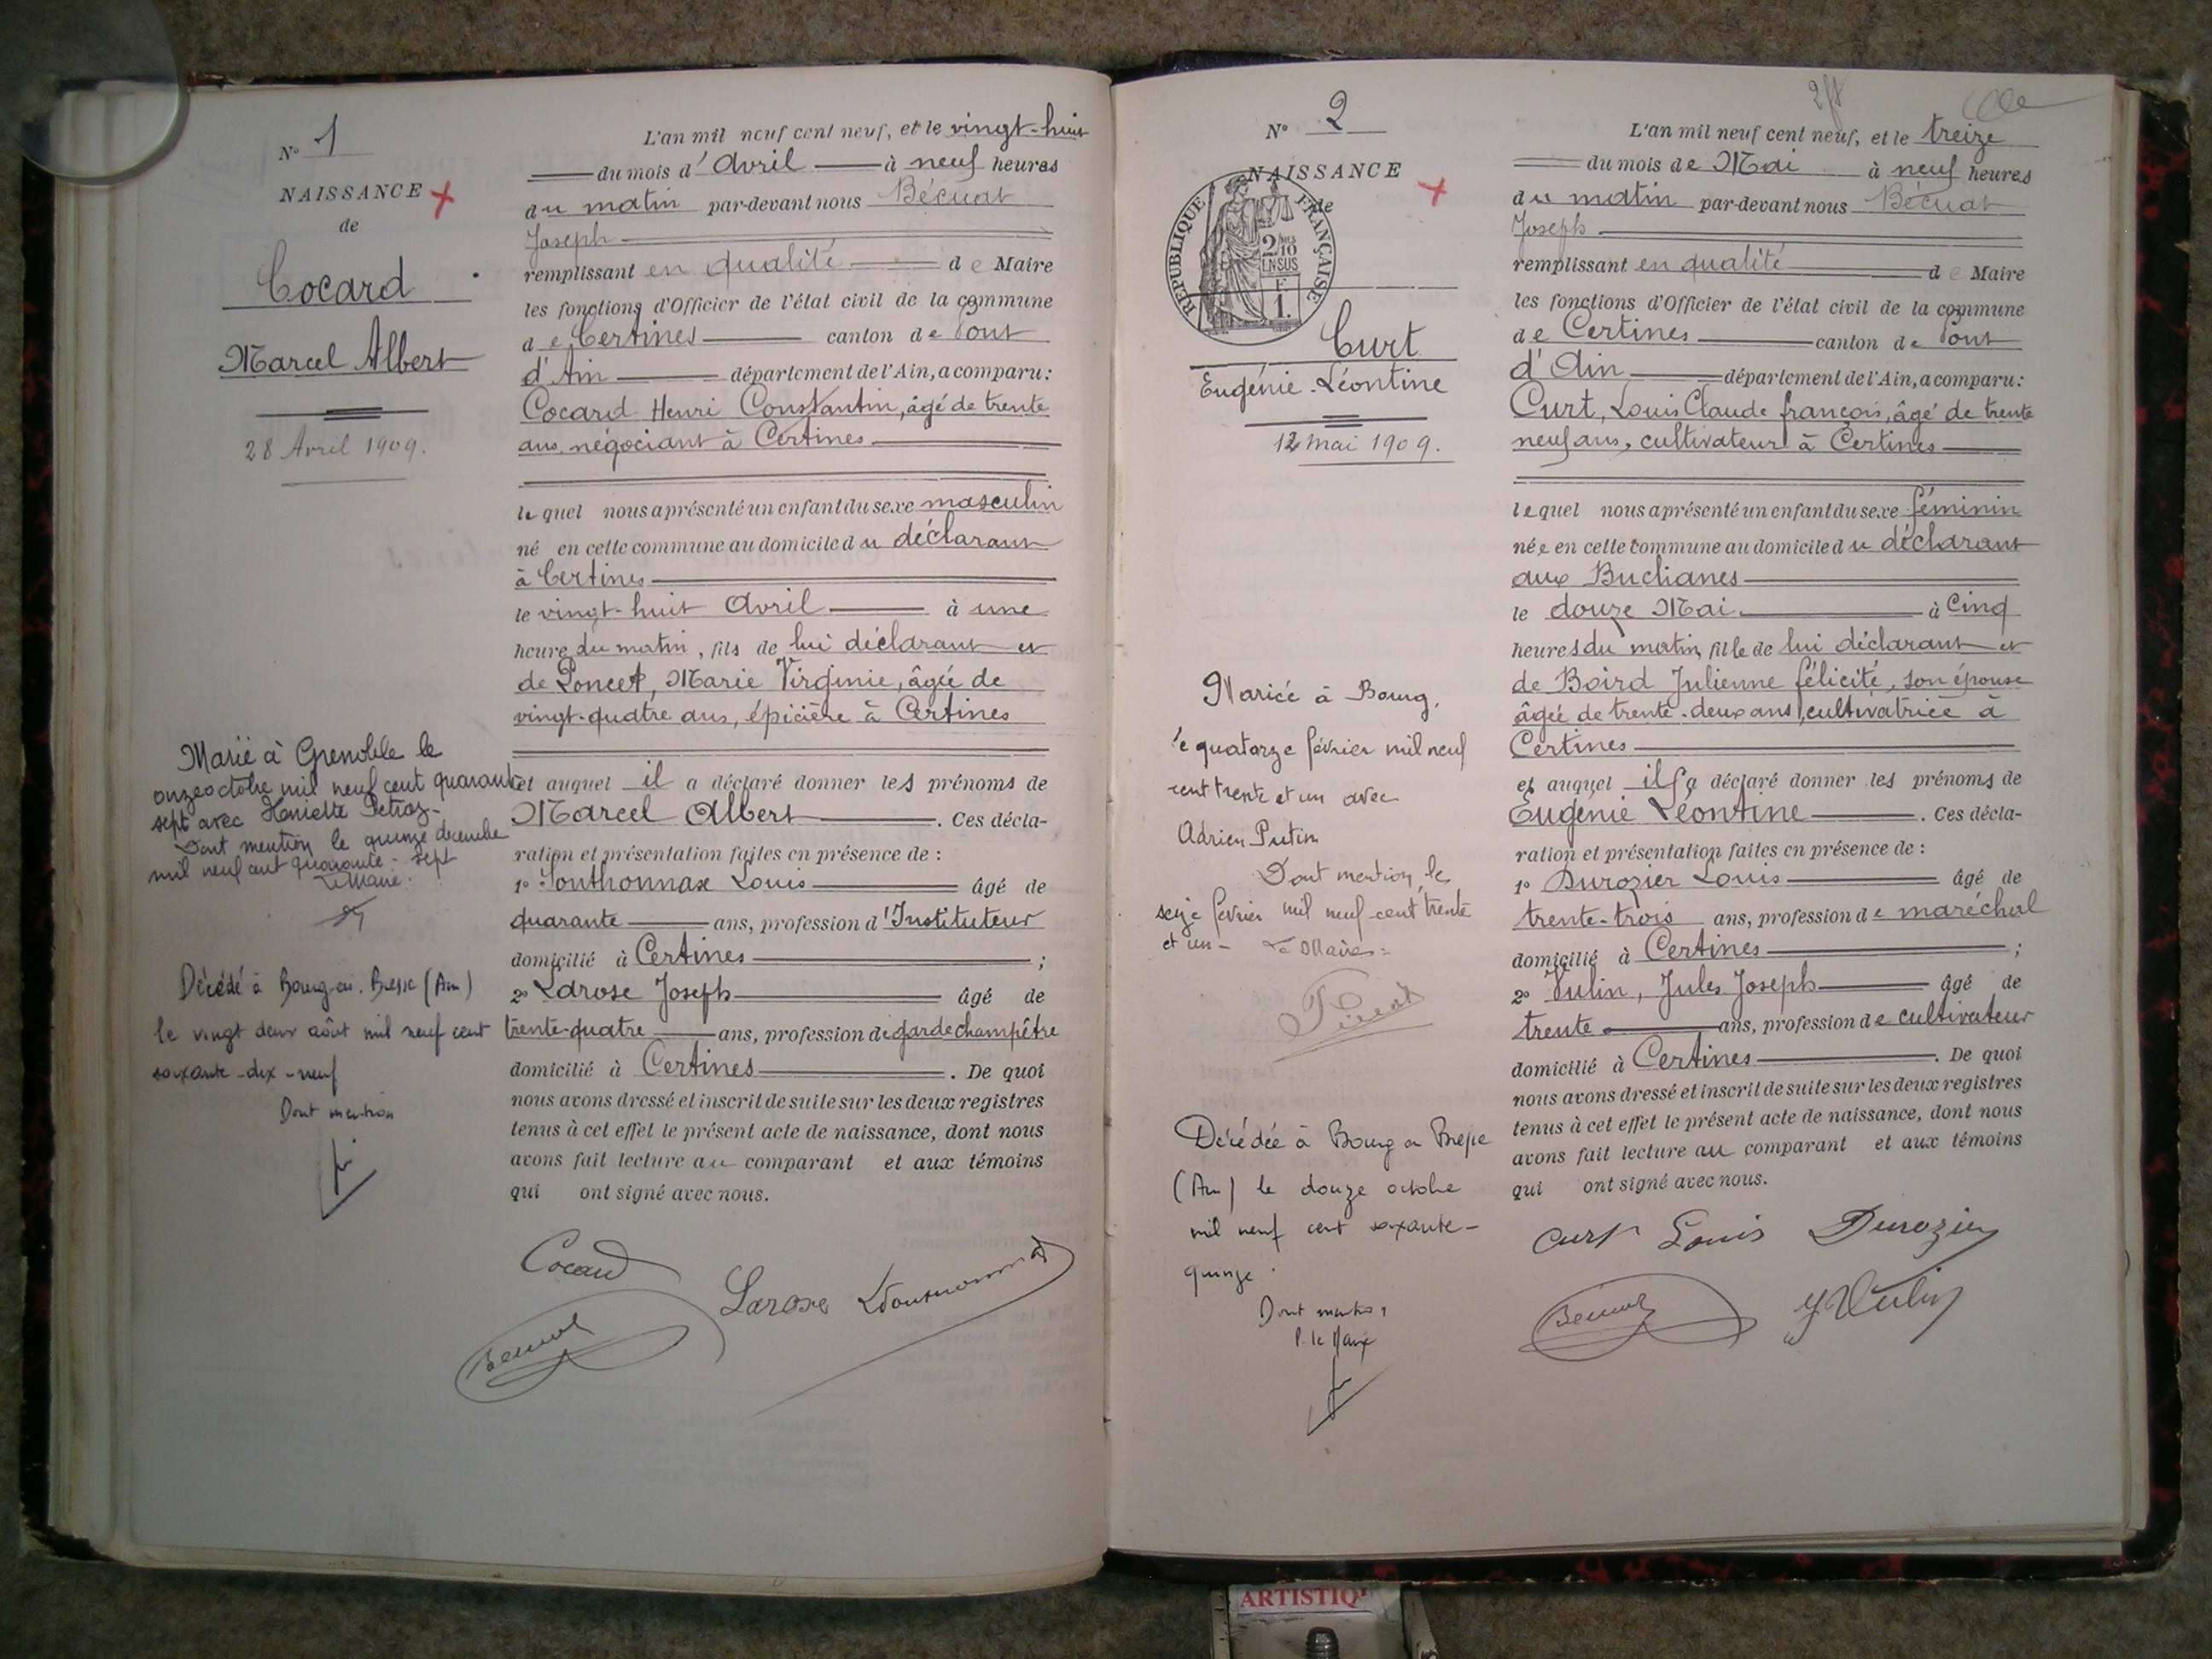 N° 1
NAISSANCE
de
Cocard
Marcel Albert
28 Avril 1909.
Marié à Grenoble le
onze octobre mil neuf cent quarante
sept avec Henriette Petroz-
Dont mention le quinze décembre
mil neuf cent quarante-sept
Le Maire.
Décédé à Bourg-en-Bresse (Ain)
le vingt deux août mil neuf cent
soixante-dix-neuf
Dont mention
L'an mil neuf cent neuf, et le vingt-huit
du mois d'Avril à neuf heures
du matin par-devant nous Bécuat
Joseph
remplissant en qualité de Maire
les fonctions d'Officier de l'état civil de la commune
de Certines canton de Pont
d'Ain département de l'Ain, a comparu:
Cocard Henri Constantin, âgé de trente
ans, négociant à Certines
lequel nous a présenté un enfant du sexe masculin
né en cette commune au domicile du déclarant
à Certines
le vingt-huit Avril à une
heure du matin, fils de lui déclarant et
de Poncet, Marie Virginie, âgée de
vingt-quatre ans, épicière à Certines
et auquel il a déclaré donner les prénoms de
Marcel Albert. Ces décla-
ration et présentation faites en présence de :
1° Fonthonnax Louis âgé de
quarante ans, profession d'Instituteur
domicilié à Certines ;
2° Larose Joseph âgé de
trente-quatre ans, profession de garde champêtre
domicilié à Certines. De quoi
nous avons dressé et inscrit de suite sur les deux registres
tenus à cet effet le présent acte de naissance, dont nous
avons fait lecture au comparant et aux témoins
qui ont signé avec nous.
Cocard
Larose
Bécuat
N° 2
NAISSANCE
de
RÉPUBLIQUE FRANÇAISE
2/10
EN SUS
1.
Curt
Eugénie Léontine
12 mai 1909.
Mariée à Bourg,
le quatorze février mil neuf
cent trente et un avec
Adrien Putin
Dont mention, le
seize février mil neuf cent trente
et un - Le Maire =
Décédée à Bourg en Bresse
(Ain) le douze octobre
mil neuf cent soixante-
quinze.
Dont mention
P. le Maire
L'an mil neuf cent neuf, et le treize
du mois de Mai à neuf heures
du matin par-devant nous Bécuat
Joseph
remplissant en qualité de Maire
les fonctions d'Officier de l'état civil de la commune
de Certines canton de Pont
d'Ain département de l'Ain, a comparu:
Curt, Louis Claude françois, âgé de trente
neuf ans, cultivateur à Certines
lequel nous a présenté un enfant du sexe féminin
née en cette commune au domicile du déclarant
aux Buclianes
le douze Mai à cinq
heures du matin, fille de lui déclarant et
de Boird Julienne félicité, son épouse
âgée de trente-deux ans, cultivatrice à
Certines
et auquel il a déclaré donner les prénoms de
Eugénie Léontine. Ces décla-
ration et présentation faites en présence de :
1° Durozier Louis âgé de
trente-trois ans, profession de maréchal
domicilié à Certines ;
2° Vulin, Jules Joseph âgé de
trente ans, profession de cultivateur
domicilié à Certines. De quoi
nous avons dressé et inscrit de suite sur les deux registres
tenus à cet effet le présent acte de naissance, dont nous
avons fait lecture au comparant et aux témoins
qui ont signé avec nous.
Curt Louis Durozier
Bécuat J Vulin
ARTISTIQ